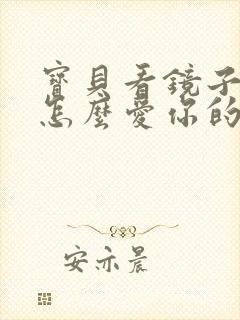 寶貝看鏡子
怎麼愛你的
安亦晨